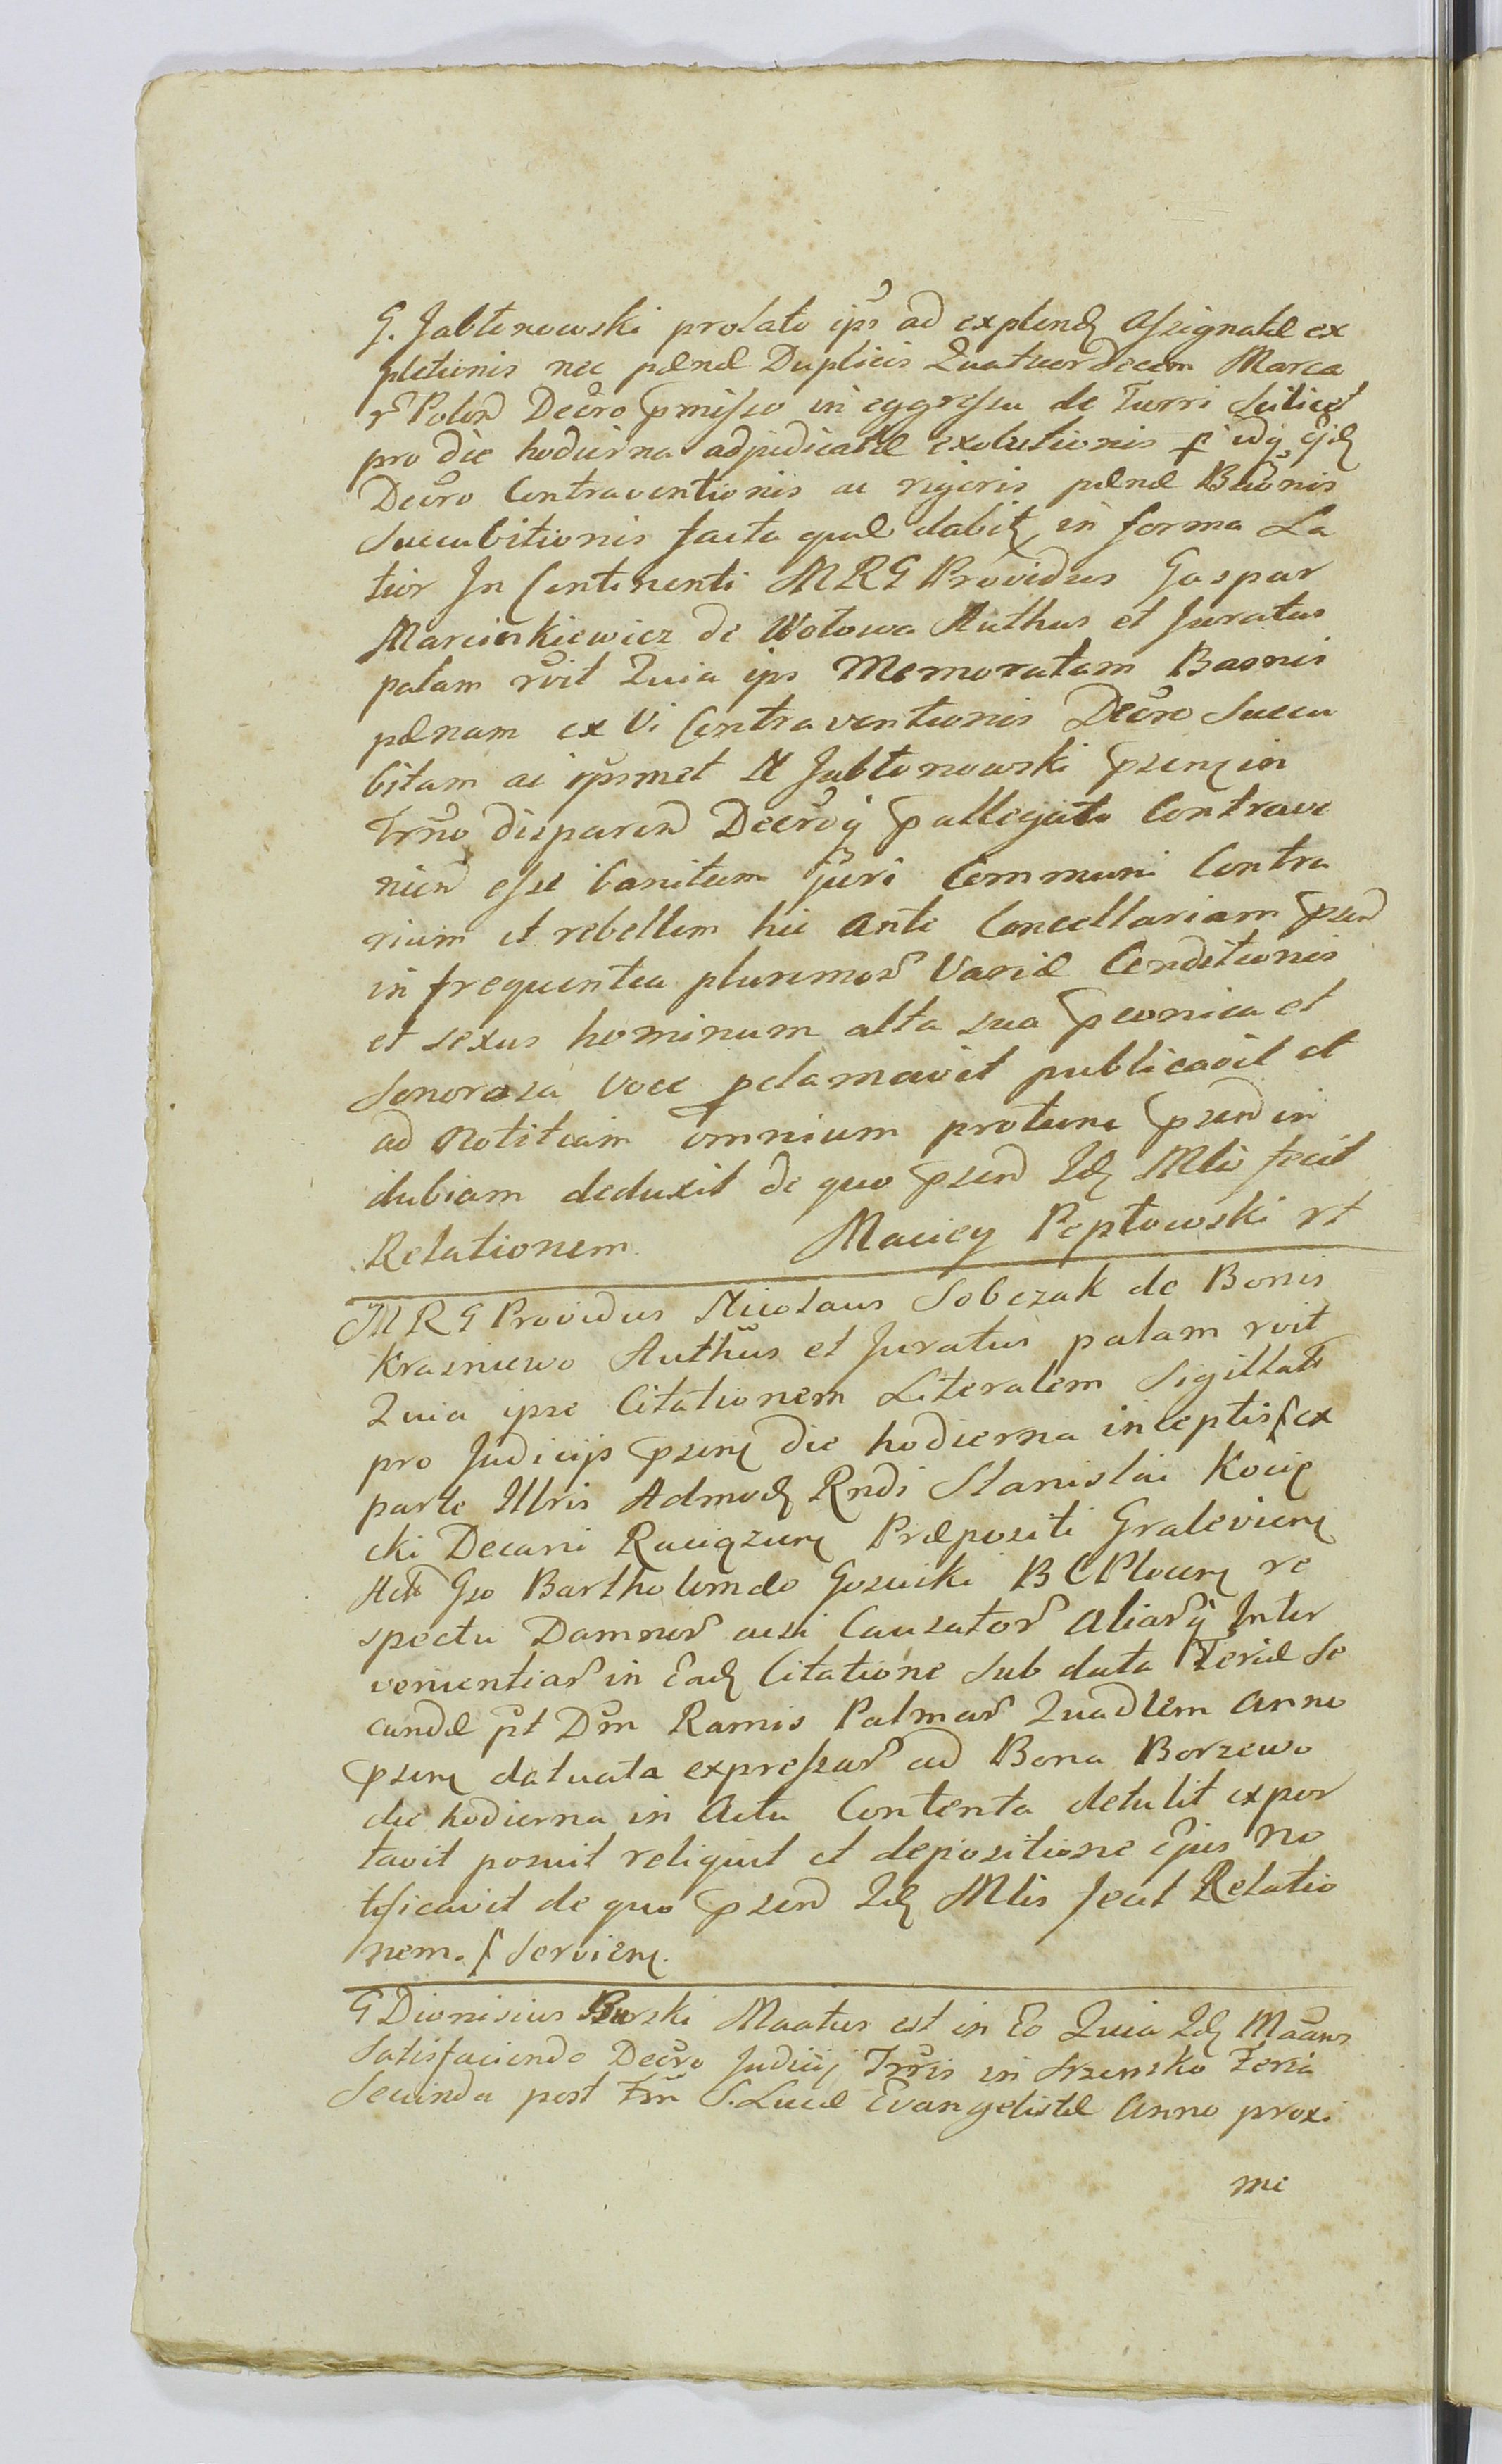 G. Jabłonowski prolato ips ad explend assignatæ ex
pletionis nec pænæ Duplicis Quatuordecem Marca
r Polon Decro pmisso in eggressu de Turri scilicet
pro die hodierna adjudicatæ exolutionis
Decro Contraventionis ac rigoris pænæ Bãonis
Succubitionis facta quæ dabit in forma La
tior In Continenti MRG Providus Gaspar
Marcinkiewicz de Wołowa Authus et Juratus
palam rvit Quia ips Memoratam Baonis
pænam ex Vi Contraventionis Decro Succu
bitam ac ipsmet N Jabłonowski psenq in
Trno disparen Decroq p allegato Contrave
nien esse banitum juri Communi Contra
rium et rebellem hic ante Cancellariam psen
in frequentia plurimor Variæ Conditionis
et sexus hominum alta sua pconica et
Sonorosa voce pclamavit publicavit et
ad notitiam omnium protunc psen in
dubiam deduxit de quo psen Id Mlis fecit
Relationem. Maciey Pepłowski rt
MRG Providus Nicolaus Sobczak de Bonis
Krasniewo Authus et Juratus palam rvit
Quia ipse Citationem Literalem Sigillat
pro Judicijs psen die hodierna inceptis ex
parte Illris Admod Rndi Stanislai Kocię
cki Decani Raciązen Præpositi Gralevien
Act Gso Bartholomæo Gosicki BCPlocen re
spectu Damnor Causator aliarq Inter
venientiar in Ead Citatione sub data Feriæ Se
cundæ pt Dm Ramis Palmar Quadlem anno
psen datuata expressar ad Bona Borzewo
die hodierna in Actu Contenta detulit expor
tavit posuit reliquit et depositione Ejus no
tificavit de quo psen Id Mlis fecit Relatio
nem. Servien.
G Dionisius Burski Maatus est in Eo Quia Id Maans
Satisfaciendo Decro Judicij Trris in Szrensko Feria
Secunda post Fm S. Lucæ Evangelistæ Anno proxi
me